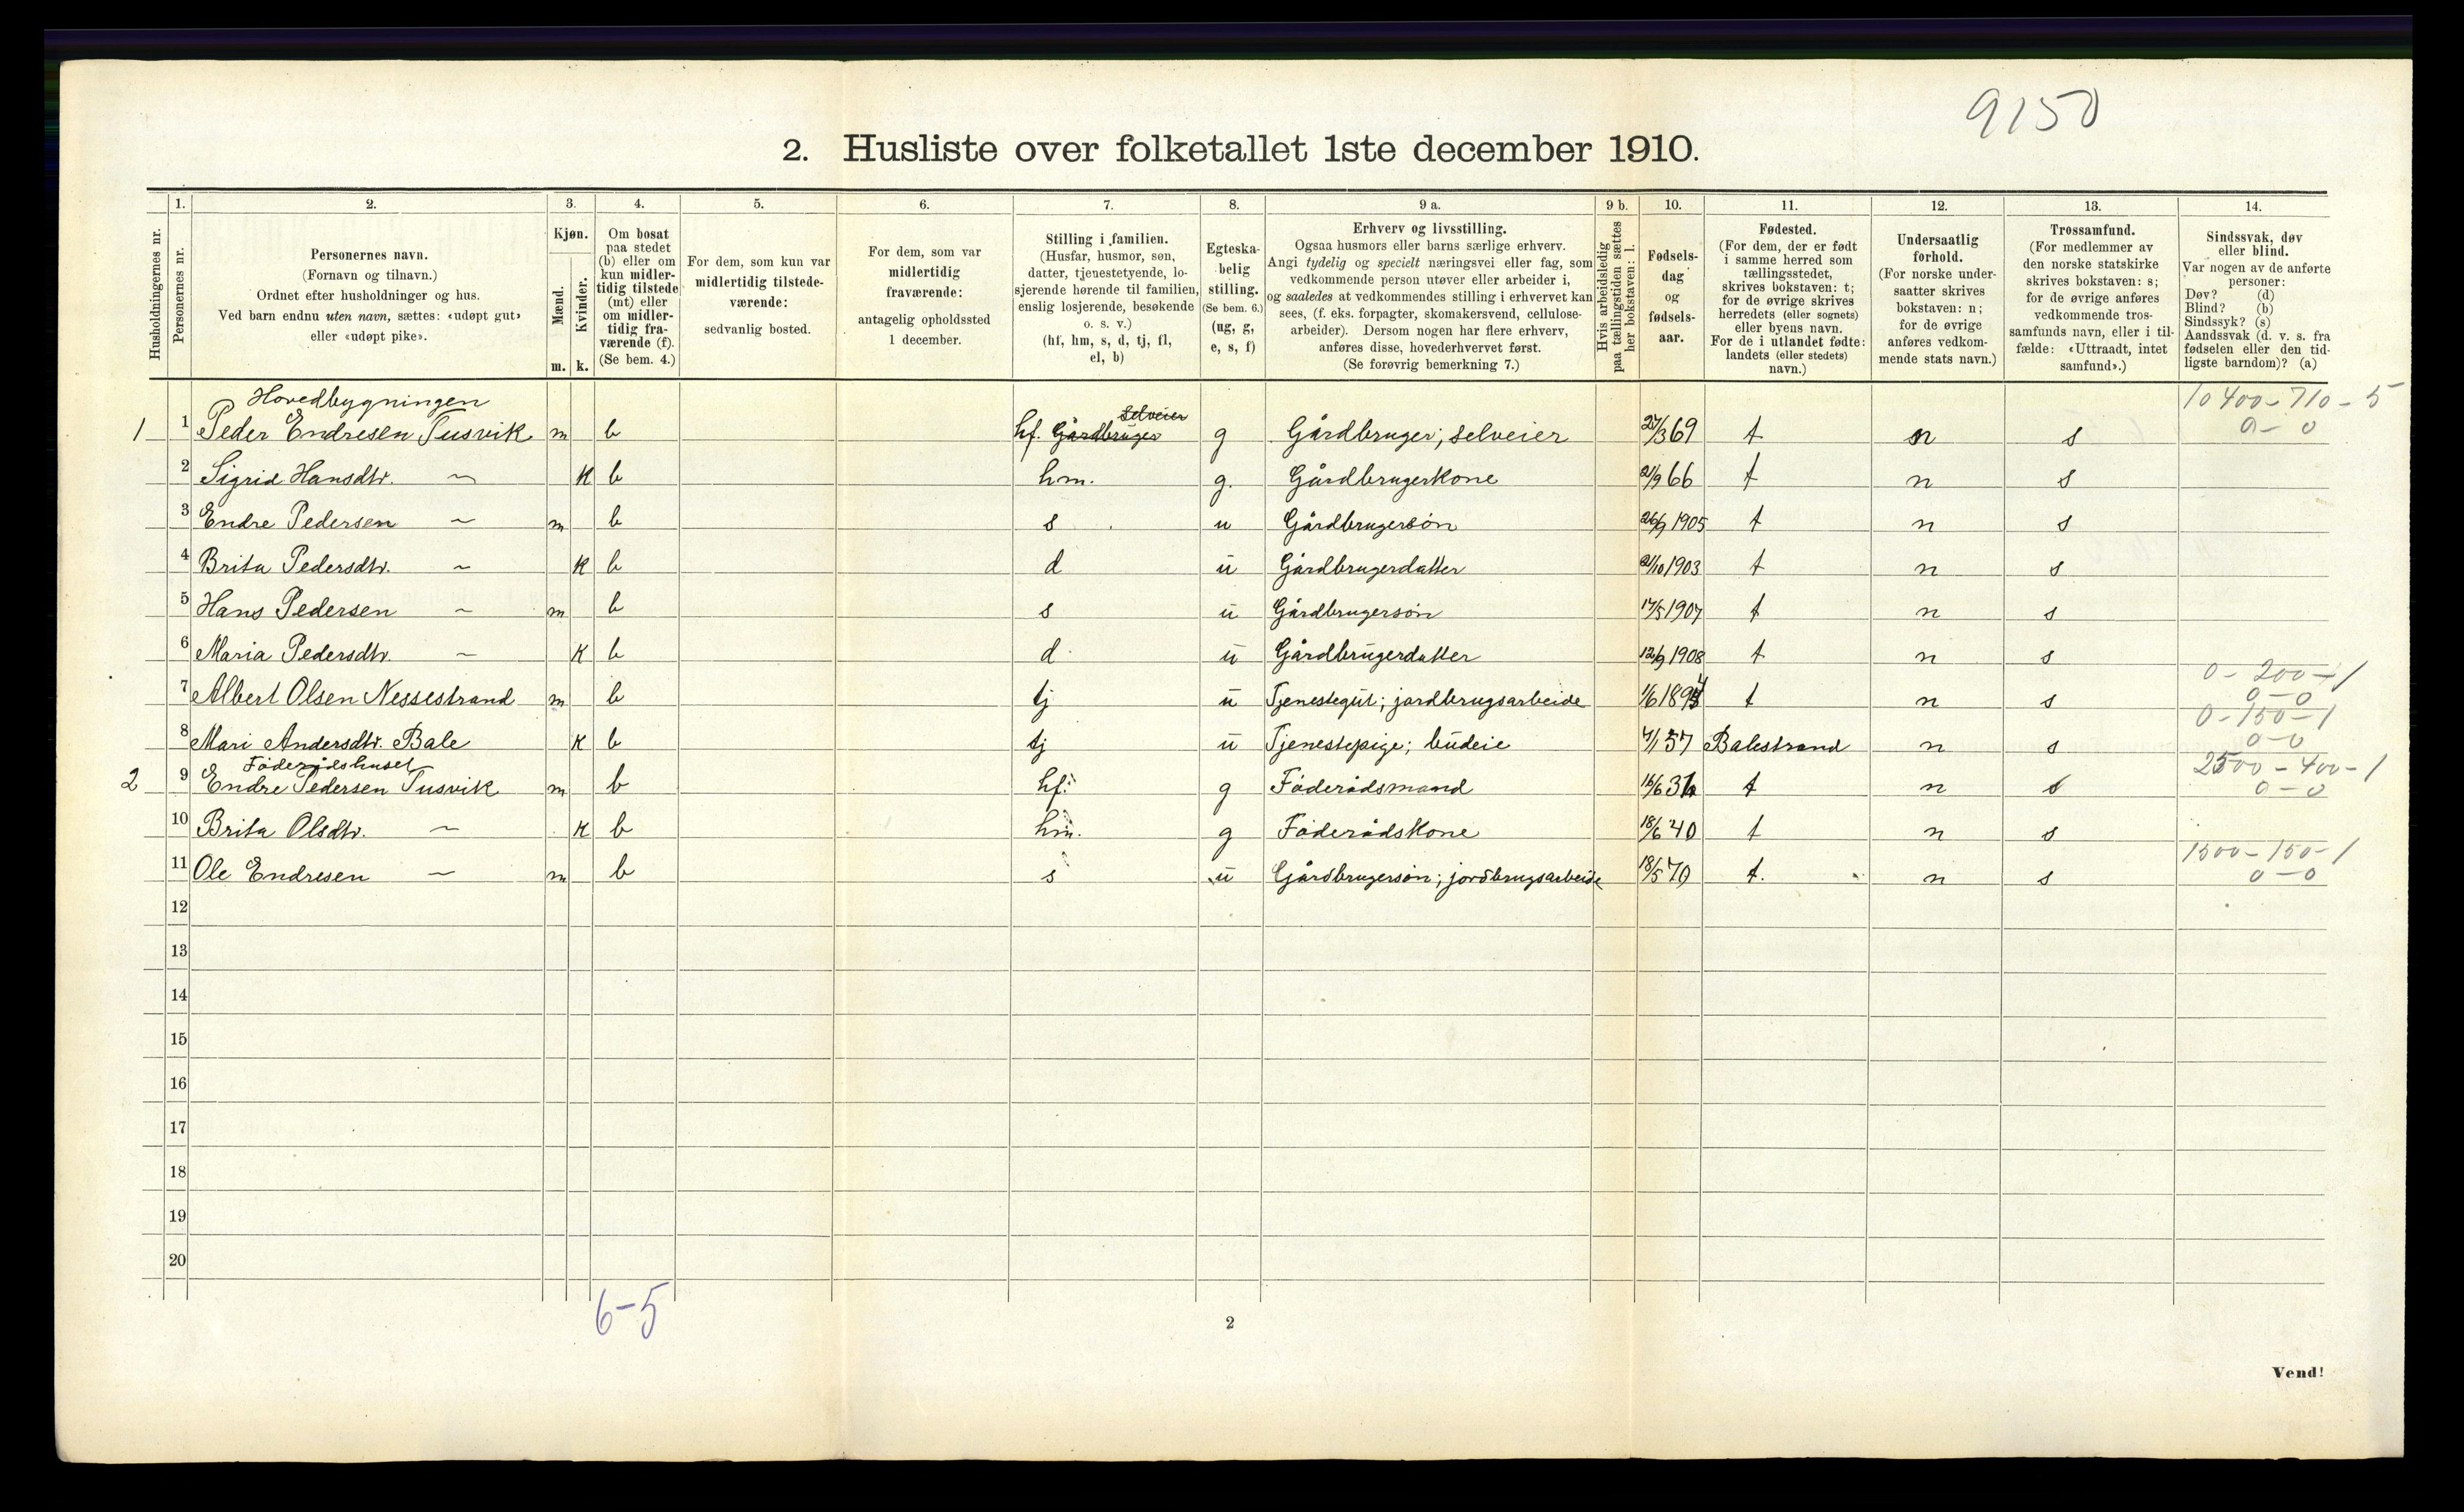 9150
2. Husliste over folketallet 1ste december 1910.
Husholdningernes nr.
1.
Personernes nr.
2.
Personernes navn.
(Fornavn og tilnavn.)
Ordnet efter husholdninger og hus.
Ved barn endnu uten navn, sættes: «udøpt gut»
eller «udøpt pike».
3.
Kjøn.
Mænd.
Kvinder.
m. k.
4.
Om bosat
paa stedet
(b) eller om
kun midler-
tidig tilstede
(mt) eller
om midler-
tidig fra-
værende (f).
(Se bem. 4.)
5.
For dem, som kun var
midlertidig tilstede-
værende:
sedvanlig bosted.
6.
For dem, som var
midlertidig
fraværende:
antagelig opholdssted
1 december.
7.
Stilling i familien.
(Husfar, husmor, søn,
datter, tjenestetyende, lo-
sjerende hørende til familien,
enslig losjerende, besøkende
o. s. v.)
(hf, hm, s, d, tj, fl,
el, b)
8.
Egteska-
belig
stilling.
(Se bem. 6.)
(ug, g,
e, s, f)
9 a.
Erhverv og livsstilling.
Ogsaa husmors eller barns særlige erhverv.
Angi tydelig og specielt næringsvei eller fag, som
vedkommende person utøver eller arbeider i,
og saaledes at vedkommendes stilling i erhvervet kan
sees, (f. eks. forpagter, skomakersvend, cellulose-
arbeider). Dersom nogen har flere erhverv,
anføres disse, hovederhvervet først.
(Se forøvrig bemerkning 7.)
9 b.
Hvis arbeidsledig
paa tællingstiden sættes
her bokstaven: l.
10.
Fødsels-
dag
og
fødsels-
aar.
11.
Fødested.
(For dem, der er født
i samme herred som
tællingsstedet,
skrives bokstaven: t;
for de øvrige skrives
herredets (eller sognets)
eller byens navn.
For de i utlandet fødte:
landets (eller stedets)
navn.)
12.
Undersaatlig
forhold.
(For norske under-
saatter skrives
bokstaven: n;
for de øvrige
anføres vedkom-
mende stats navn.)
13.
Trossamfund.
(For medlemmer av
den norske statskirke
skrives bokstaven: s;
for de øvrige anføres
vedkommende tros-
samfunds navn, eller i til-
fælde: «Uttraadt, intet
samfund».)
14.
Sindssvak, døv
eller blind.
Var nogen av de anførte
personer:
Døv? (d)
Blind? (b)
Sindssyk? (s)
Aandssvak (d. v. s. fra
fødselen eller den tid-
ligste barndom)? (a)
Hovedbygningen
Selveier
10400-710-5
1 1 Peder Endresen Tusvik m b hf. Gårdbruger g Gårdbruger; selveier 27/3 69 t n s 0-0
2 Sigrid Hansdtr. ~ K b hm. g. Gårdbrugerkone 21/9 66 t n s
3 Endre Pedersen ~ m b s u Gårdbrugersön 26/9 1905 t n s
4 Brita Pedersdtr. ~ K b d u Gårdbrugerdatter 21/10 1903 t n s
5 Hans Pedersen ~ m b s u Gårdbrugersön 17/5 1907 t n s
6 Maria Pedersdtr. ~ K b d u Gårdbrugerdatter 12/9 1908 t n s
0-200-1
7 Albert Olsen Nessestrand m b tj u Tjenestegut; jordbrugsarbeide 1/6 189 t n s 0-0
0-150-1
8 Mari Andersdtr. Bale K b tj u Tjenestepige; budeie 4/1 57 Balestrand n s 0-0
Föderådshuset
2500-400-1
2 9 Endre Pedersen Tusvik m b hf. g Föderådsmand t n s 0-0
10 Brita Olsdtr. ~ K b hm. g Föderådskone 18/6 40 t n s
1500-150-1
11 Ole Endresen ~ m b s u Gårdbrugersön; jordbrugsarbeide 18/5 70 t. n s 0-0
12
13
14
15
16
17
18
19
20
6-5
2
Vend!